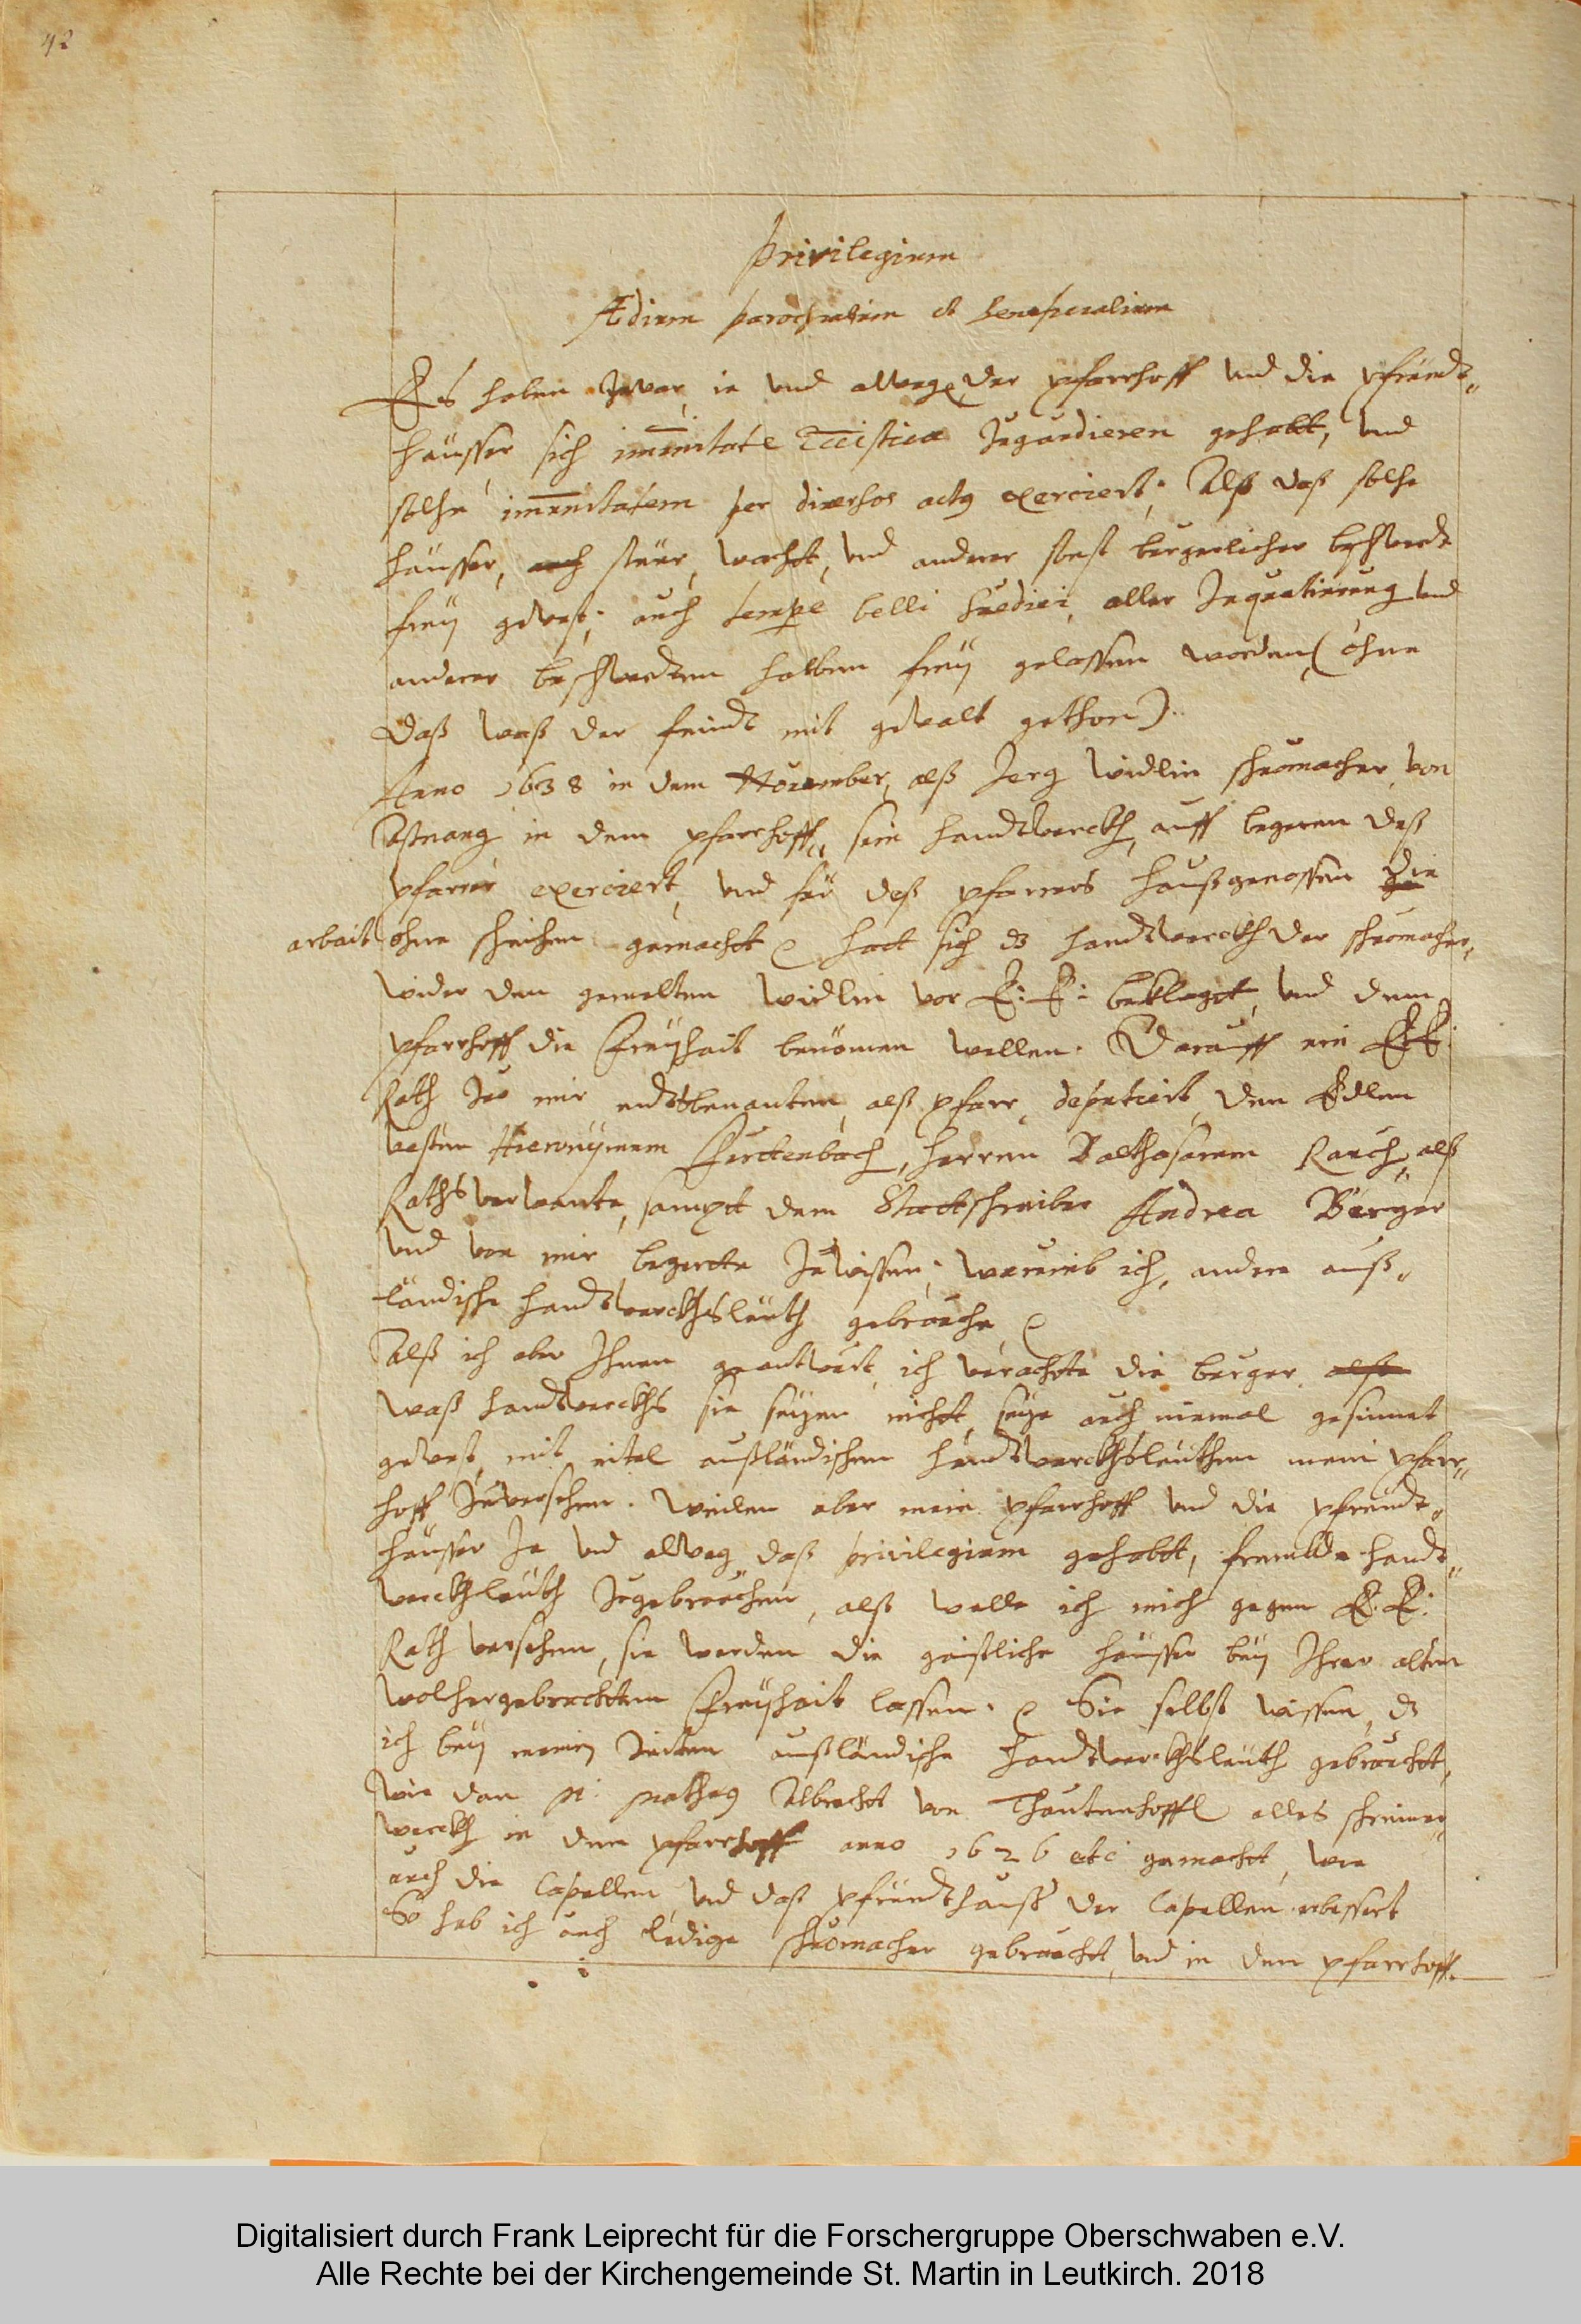 42
Privilegium
Ædium parochialium et beneficialium
Es haben zwar, ie und allwege, der pfarrhoff und die pfrundt„
häusser sich immunitate Ecclesiastica zugaudieren gehabt, und
solche immunitatem per diversos actus exerciert; Alß daß solche
häusser, steur, wacht, und anderer sonst burgerlicher beschwerdt
frey gewest; auch tempore belli Suedici, aller Inquatierung und
anderer beschwerdten halben frey gelassen worden (ohne
daß waß der feindt mit gewalt gethon).
Anno 1638 in dem November, alß Jerg Widlin schuomacher von
Astrang in dem pfarrhoff„ sein handtwerckh, auff begeren deß
pfarrer exerciert, und für deß pfarrers haußgenossen die
arbait ohne scheichen gemacht hatt sich dz handtwerckh der schuomacher„
wider den gemelten Widlin vor E: E: beklagt, und dem
pfarrhoff die freyhait benömen wellen. Darauff ein E: E:
Rath zuo mir endtsbenanten, alß pfarr, deputiert, den Edlen
vesten Hieronymum Furttenbach, herren Balthasarem Rauch, alß
Raths verwante, sampt dem Stattschreiber Andrea Berger
und von mir begerte zuwissen; warumb ich, andere auß„
ländische handtwerckhsleuth gebrauche
Alß ich aber Ihnen geantwort, ich verachte die burger
waß handtwerckhs sie seyen nicht, seye auch niemal gesinnet
gewest, mit eitel außländischen handtwerckhsleuthen mein pfarr„
hoff zuversehen. Weilen aber mein pfarrhoff und die pfrundt„
häusser Je und alweg daß privilegium gehabt, frembde handt„
werckhleuth zugebrauchen, alß welle ich mich gegen E: E:
Rath versehen, sie werden die geistliche häusser bey Ihrer alten
wolhergebrachten freyhait lassen. Sie selbst wissen, dz
ich bey meinen zeiten außländische handtwerckhsleuth gebraucht,
wie dan M: Matheus Albrecht von Thautenhoffen alles schreiner„
werckh in dem pfarrhoff anno 1626 etc gemacht, wie
auch die Capellen, und daß pfrundthauß der Capellen verbessert
So hab ich auch ledige schuomacher gebraucht, und in dem pfarrhoff.
Digitalisiert durch Frank Leiprecht für die Forschergruppe Oberschwaben e.V.
Alle Rechte bei der Kirchengemeinde St. Martin in Leutkirch. 2018